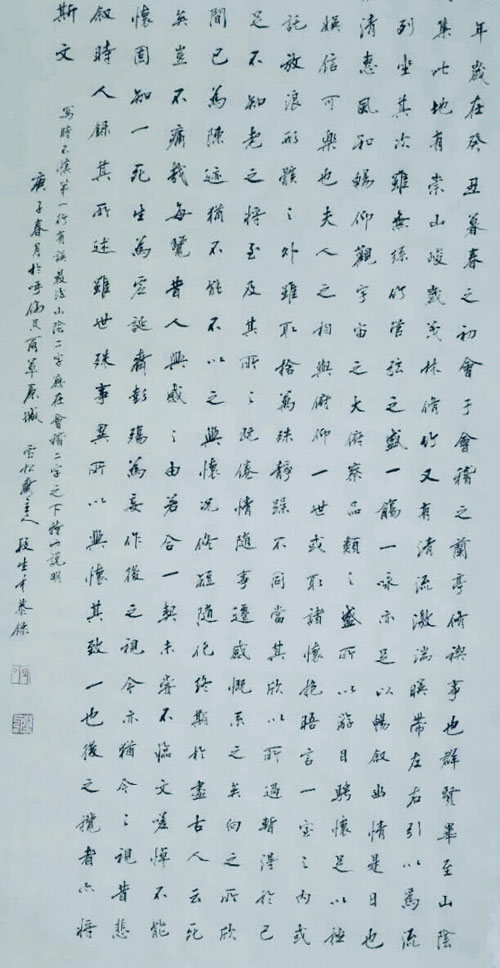 年歲在癸丑暮春之初會于會稽之蘭亭脩禊事也群賢畢至山陰
集此地有崇山峻嶺茂林脩竹又有清流激湍暎帶左右引以為流
列坐其次雖無絲竹管弦之盛一觴一詠亦足以暢敘幽情是日也
清惠風和暢仰觀宇宙之大俯察品類之盛所以游目騁懷足以極
娛信可樂也夫人之相與俯仰一世或取諸懷抱晤言一室之內或
託放浪形骸之外雖取捨萬殊靜躁不同當其欣以所過暫得於己
足不知老之將至及其所之既倦情隨事遷感慨系之矣向之所欣
間已為陳迹猶不能不以之興懷況脩短隨化終期於盡古人云死
矣豈不痛哉每覽昔人興感之由若合一契未嘗不臨文嗟悼不能
懷固知一死生為虛誕齊彭殤為妄作後之視今亦猶今之視昔悲
敘時人錄其所述雖世殊事異所以興懷其致一也後之攬者亦將
斯文
寫時不慎第一行有誤最後山陰二字應在會稽二字之下特以說明
庚子春月於呼倫貝爾草原城 雲松齋主人段生才恭錄